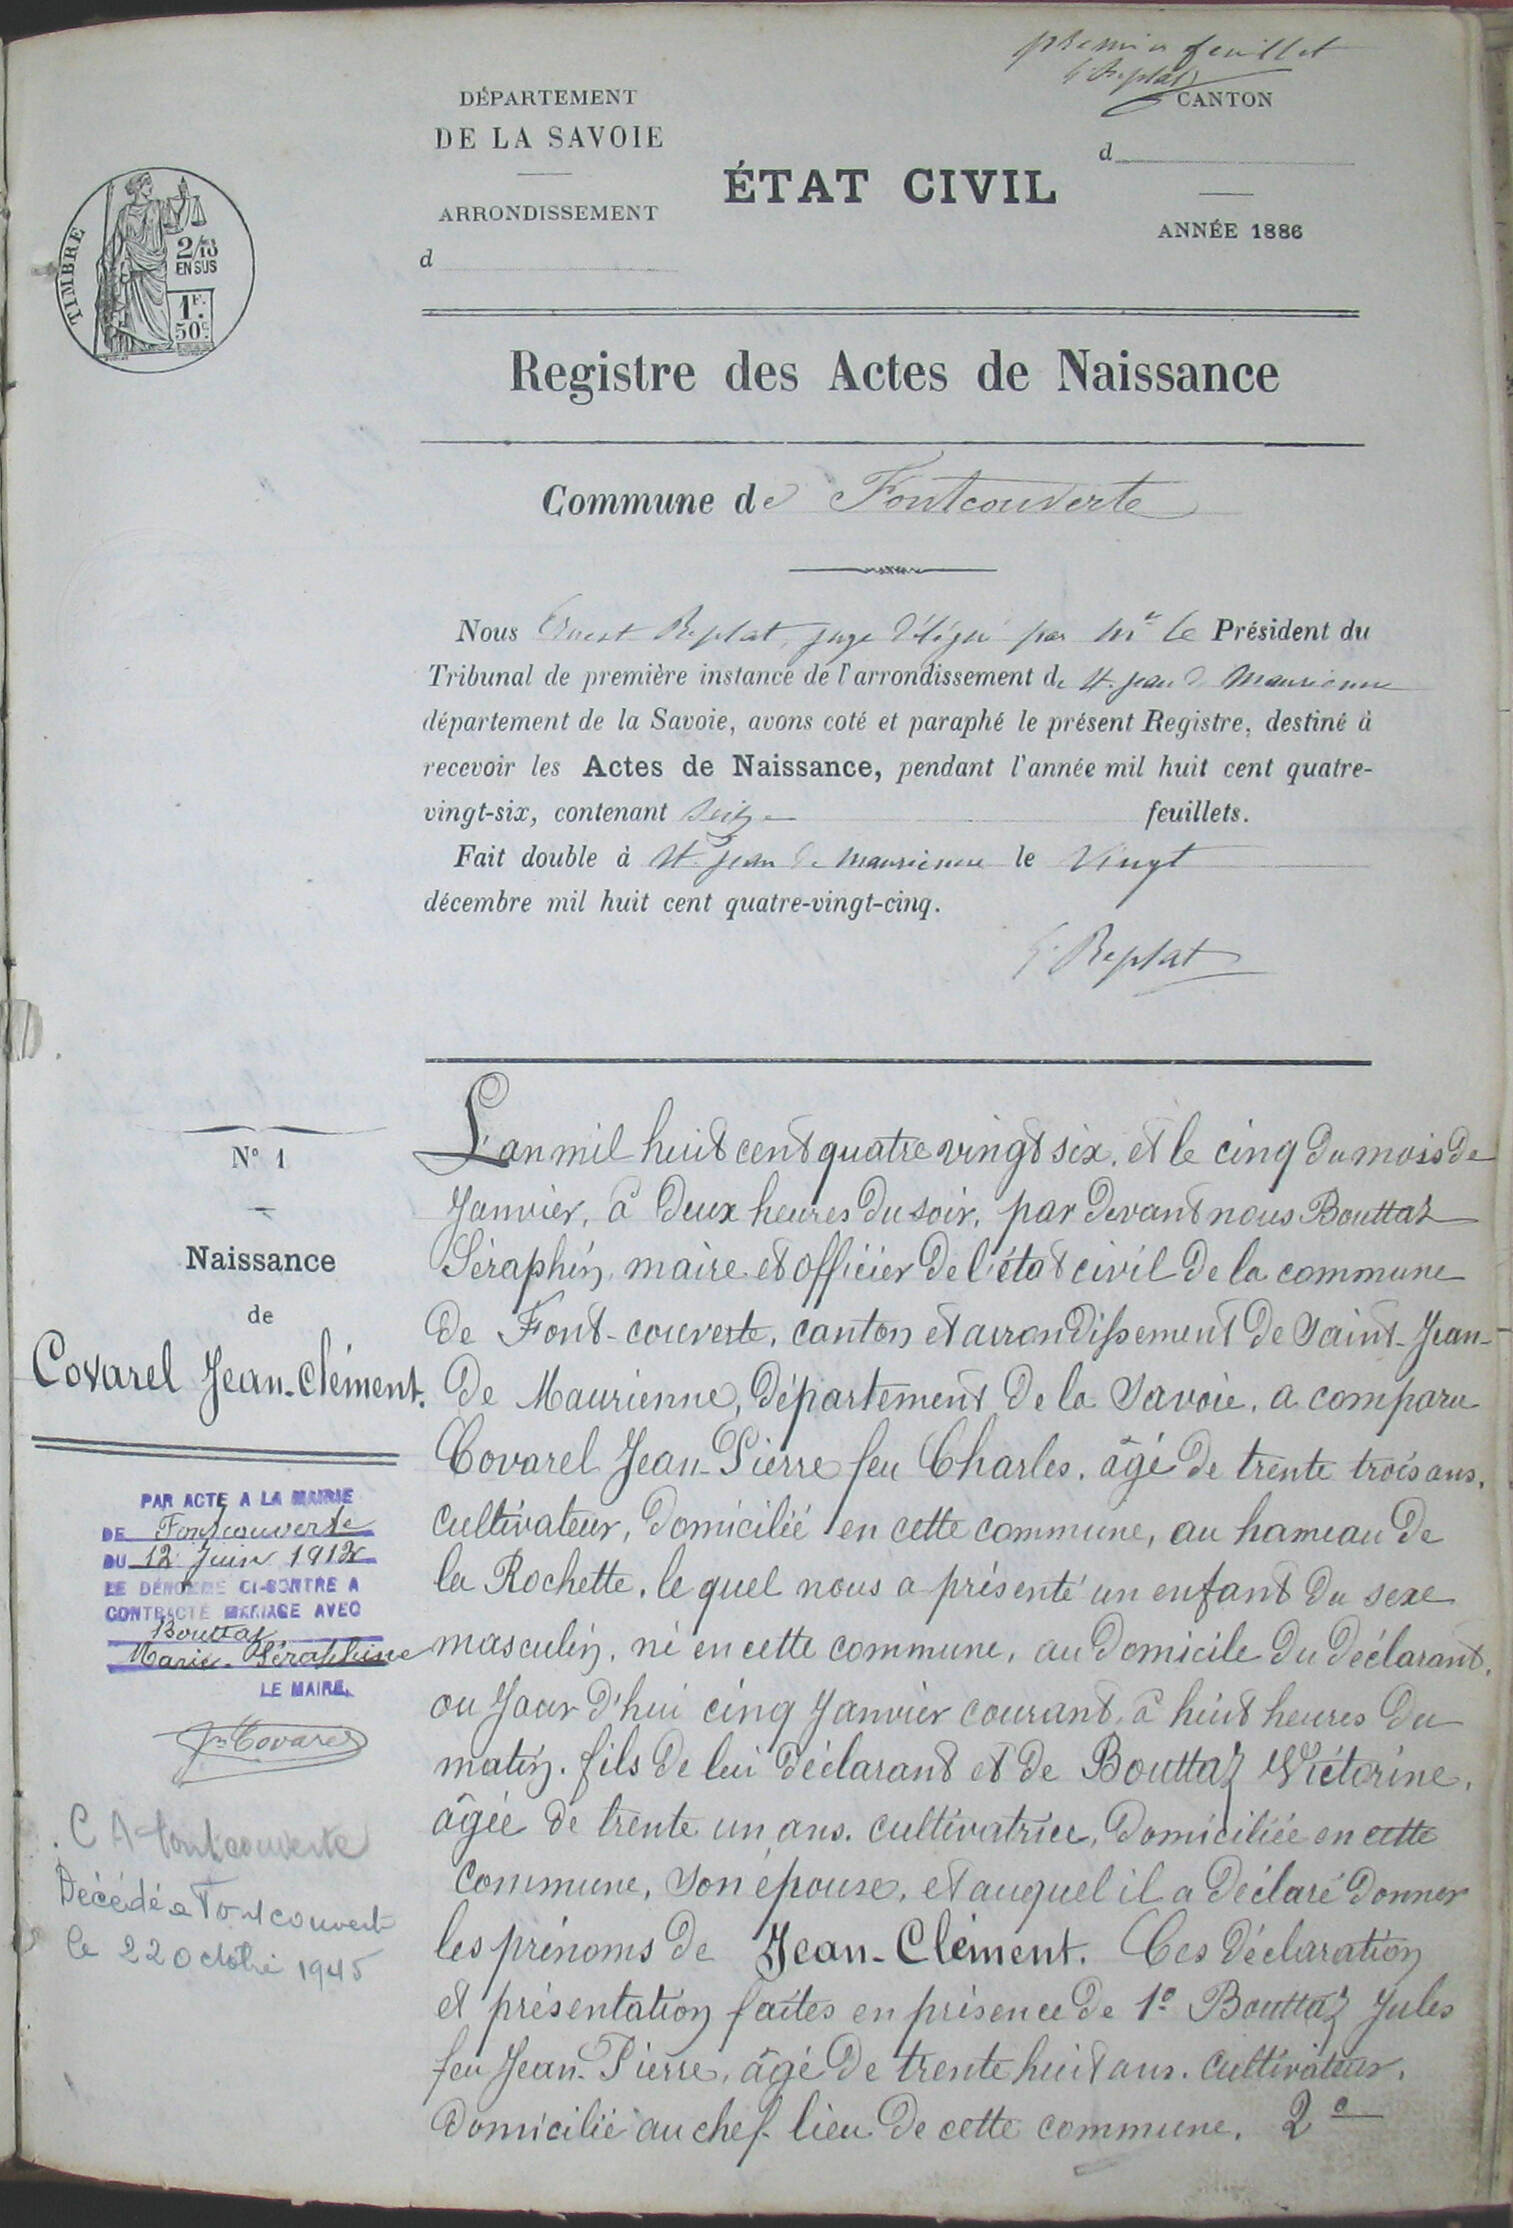 premier feuillet
E. Replat
DÉPARTEMENT
DE LA SAVOIE
ARRONDISSEMENT
d
ÉTAT CIVIL
CANTON
d
ANNÉE 1886
TIMBRE
2/10
EN SUS
1F.
50c.
Registre des Actes de Naissance
Commune de Fontcouverte
Nous Ernest Replat, juge délégué par Mr le Président du
Tribunal de première instance de l'arrondissement de St. Jean de Maurienne
département de la Savoie, avons coté et paraphé le présent Registre, destiné à
recevoir les Actes de Naissance, pendant l'année mil huit cent quatre-
vingt-six, contenant seize feuillets.
Fait double à St. Jean de Maurienne le vingt
décembre mil huit cent quatre-vingt-cinq.
E. Replat
N° 1
Naissance
de
Covarel Jean-Clément.
PAR ACTE A LA MAIRIE
DE Fontcouverte
DU 12 Juin 1912
LE DÉNOMMÉ CI-CONTRE A
CONTRACTÉ MARIAGE AVEC
Bouttaz
Marie-Séraphine
LE MAIRE,
Jn Covarel
C A Fontcouverte
Décédé a Fontcouverte
le 22 Octobre 1945
L'an mil huit cent quatre vingt six, et le cinq du mois de
Janvier, à deux heures du soir, par devant nous Bouttaz
Séraphin, maire et officier de l'état civil de la commune
de Font-couverte, canton et arrondissement de Saint-Jean-
de Maurienne, département de la Savoie, a comparu
Covarel Jean-Pierre feu Charles, âgé de trente trois ans,
cultivateur, domicilié en cette commune, au hameau de
la Rochette, le quel nous a présenté un enfant du sexe
masculin, né en cette commune, au domicile du déclarant,
au Jour d'hui cinq Janvier courant, à huit heures du
matin. fils de lui déclarant et de Bouttaz Victorine,
âgée de trente un ans. cultivatrice, domiciliée en cette
commune, son épouse, et auquel il a déclaré donner
les prénoms de Jean-Clément. Ces déclaration
et présentation faites en présence de 1° Bouttaz Jules
feu Jean-Pierre, âgé de trente huit ans. cultivateur,
domicilié au chef-lieu de cette commune. 2°